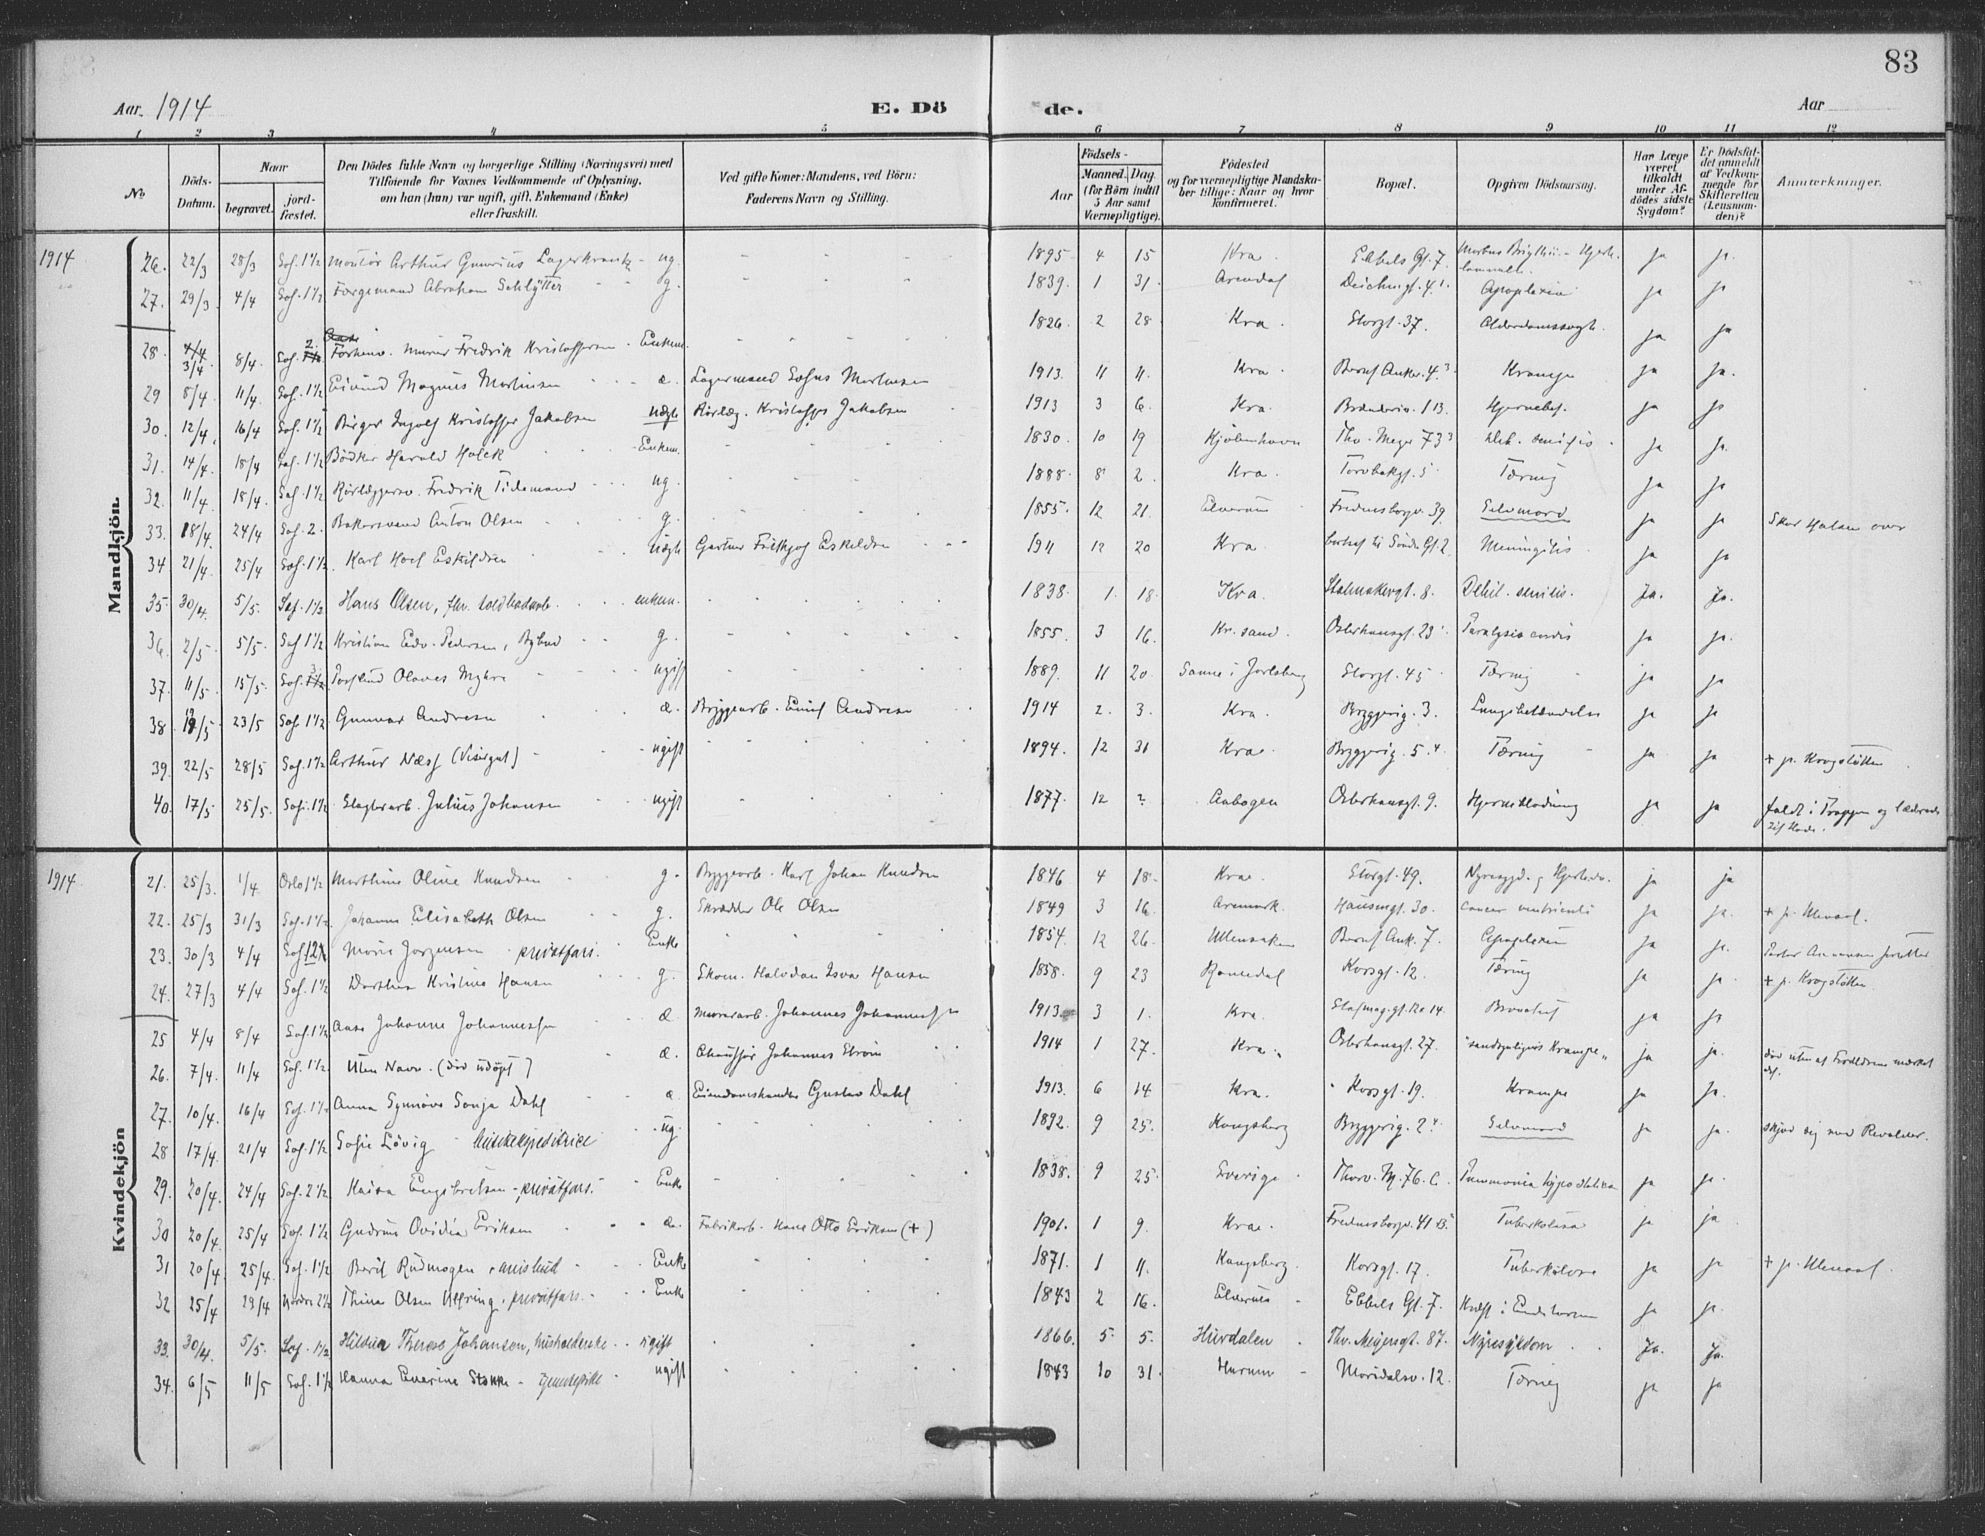 83
Aar 1914 E. Dö de. Aar
1 2 3 4 5 6 7 8 9 10 11 12
No Döds-Datum. Naar begravet. jord-fæstet. Den Dödes fulde Navn og borgerlige Stilling (Næringsvei) med Tilföiende for Voxnes Vedkommende af Oplysning, om han (hun) var ugift, gift, Enkemand (Enke) eller fraskilt. Ved gifte Koner: Mandens, ved Börn: Faderens Navn og Stilling. Födsels- Aar Maaned. Dag. (for Börn indtil 5 Aar samt Værnepligtige). Födested og for værnepligtige Mandskaber tillige: Naar og hvor konfirmeret. Bopæl. Opgiven Dödsaarsag. Har Læge været tilkaldt under Afdödes sidste Sygdom? Er Dödsfaldet anmeldt af Vedkommende for Skifteretten (Lensmanden)? Anmærkninger.
Mandkjön.
1914 26. 22/3 28/3 Sof. 1 1/2 Montör Arthur Gunerius Lagerkrantz ug. 1895 4 15 Kra. Ebbels Gt. 7. Morbus Brigthii - ja ja.
27. 29/3 4/4 Sof. 1 1/2 Færgemand Abraham Schlytter g. 1839. 1 31. Arendal Deichmgt. 4. Apoplexia ja ja
28. 3/4 8/4. Sof. 2. Forhenv. Murer Fredrik Kristoffersen Enkem. 1826. 2 28. Kra. Storgt. 37. Alderdomssvagh. ja ja
29 8/4 11/4. Sof. 1 1/2 Eivind Magnus Martinsen æ. Lagermand Martinsen 1913. 11 11. Kra. Bernt Anker. 4. Krampe ja ja.
30. 12/4 16/4 Sof. 1 1/2 Birger Ingolf Kristoffer Jakobsen uægte Rörlæg. Kristoffer Jakobsen 1913 3 6. Kra. Brenneriv. 113. Hjernebet. ja ja
31. 14/4. 18/4 Sof. 1 1/2 Bödker Harald Holck Enkem. 1830. 10 19 Kjöbenhavn Thv. Meyer 73 deb. senilis. ja ja.
32. 11/4 18/4. Sof. 1 1/2 Rörlæggersv. Fredrik Tidemand ug. 1888. 8 2. Kra. Torvbakgt. 5 Tæring ja ja
33. 18/4. 24/4 Sof. 2. Bakersvend Anton Olsen g. 1855. 12 21. Elverum Fredensborgv. 39. Selvmord ja ja Skar Halsen over
34 21/4. 25/4 Sof. 1 1/2. Karl Hoel Eskildsen uægte Gartner Fritthjof Eskildsen 1911 12 20 Kra. Gt. 2. Meningitis. ja ja
35. 30/4. 5/5. Sof. 1 1/2 Hans Olsen, fhv. toldbodarb. enkem. 1838. 1. 18. Kra. Stolmakergt. 8. Debil. senilis. Ja. Ja.
36. 2/5 5/5. Sof 1 1/2 Kristian Edv. Pedersen, Bybud g. 1855. 3 16. Kr. sand. Osterhausgt. 23 Paralysis cordis ja ja.
37. 11/5. 15/5. Sof. Olaves Myhre ugift 1889. 11 20. Sanne i Jarlsberg Storgt. 45 Tæring ja ja
38 19/5 23/5 Sof. 1 1/2 Gunnar Andresen æ. Bryggearb. Emil Andresen 1914 2. 3. Kra. Bryggerig. 3. Lungebetændelse ja ja
39. 22/5 28/5 Sof. 1 1/2 Arthur Næss (Visergut) ugift 1894. 12 31 Kra. Bryggerig. 5. Tæring ja ja + p. Krogstötten
40. 17/5 25/5. Sof. 1 1/2 Slagterarb. Julius Johansen ugift 1877. 12 ? Aabogen Osterhausgt. 9. Hjerneblödning ja ja faldt i Trappen og
Kvindekjön
1914 21. 25/3. 1/4 Oslo 1 1/2 Marthine Oline Knudsen g. Bryggearb. Karl Johan Knudsen 1846 4 18. Kra. Storgt. 49. Nyresygd. ja ja
22. 25/3 31/3 Sof. 1 1/2. Johanne Elisabeth Olsen g. Skrædder Ole Olsen 1849 3 16. Aremark. Hausmgt. 30. cancer ventriculi ja ja. + p. Ullevaal.
23. 30/3 4/4 Sof. Marie Jörgensen - privatfors. Enke 1854. 12 26. Ullensaker Bernt Ank. 7. Apoplexia ja ja.
24. 27/3 4/4 Sof. 1 1/2 Dorthea Kristine Hansen g. Skom. Halvdan Hansen 1858. 9 23 Romedal Korsgt. 12. Tæring ja ja. + p. Krogstötten
25 4/4 8/4 Sof. 1 1/2 Aase Johanne Johannessen æ. Murerarb. Johannes Johannessen 1913 3 1. Kra. Bronchit ja ja
26. 7/4. 11/4 Sof. 1 1/2 Uten Navn. (död udöpt) æ. Chaufför Johannes Ström 1914 1 27. Kra. Osterhausgt. 27. "sandsynligvis Krampe" ja ja. död uten at Foreldrene mærket det.
27. 10/4. 16/4 Sof. 1 1/2 Anna Synnöve Sonja Dahl æ Eiendomshandler Gustav Dahl 1913. 6 14 Kra. Korsgt. 19. Krampe ja ja.
28 17/4. 21/4 Sof. 1 1/2 Sofie Lövig ug. 1892. 9 25. Kongsberg Bryggerig. 2 Selvmord ja ja. skjöd sig med Revolver.
29. 20/4. 24/4 Sof. 2 1/2 Kaisa Engebretsen - privatfors. Enke 1838. 9 25. Sverige Thorv. M. 76. C. Pneumonia hypostatica ja ja
30 20/4. 25/4 Sof. 1 1/2 Gudrun Ovidia Eriksen æ. Fabrikarb. Hans Otto Eriksen (+) 1901. 1 9. Kra. Fredensborgv. 41 Tuberkulose ja ja
31 20/4 25/4. Sof. 1 1/2 Berit Rudmogen Enke 1871. 1 11. Kongsberg. Korsgt. 17. Tuberkulose ja ja + p. Ullevaal.
32 25/4 29/4 Nordre 2 1/2 Thina Olsen privatfors. Enke 1843 2 16. Elverum Ebbels Gt. 7. Kræft i ja ja.
33. 30/4. 5/5. Sof. 1 1/2 Hilda Therese Johansen, husholderske ugift 1866. 5. 5. Hurdalen Thv. Meyersgt. 87. Nyresygdom Ja. Ja.
34. 6/5 11/5 Sof. 1 1/2 Hanna Enerine tjenestepike ugift 1843 10 31. Hurum Maridalsv. 12. Tæring ja ja